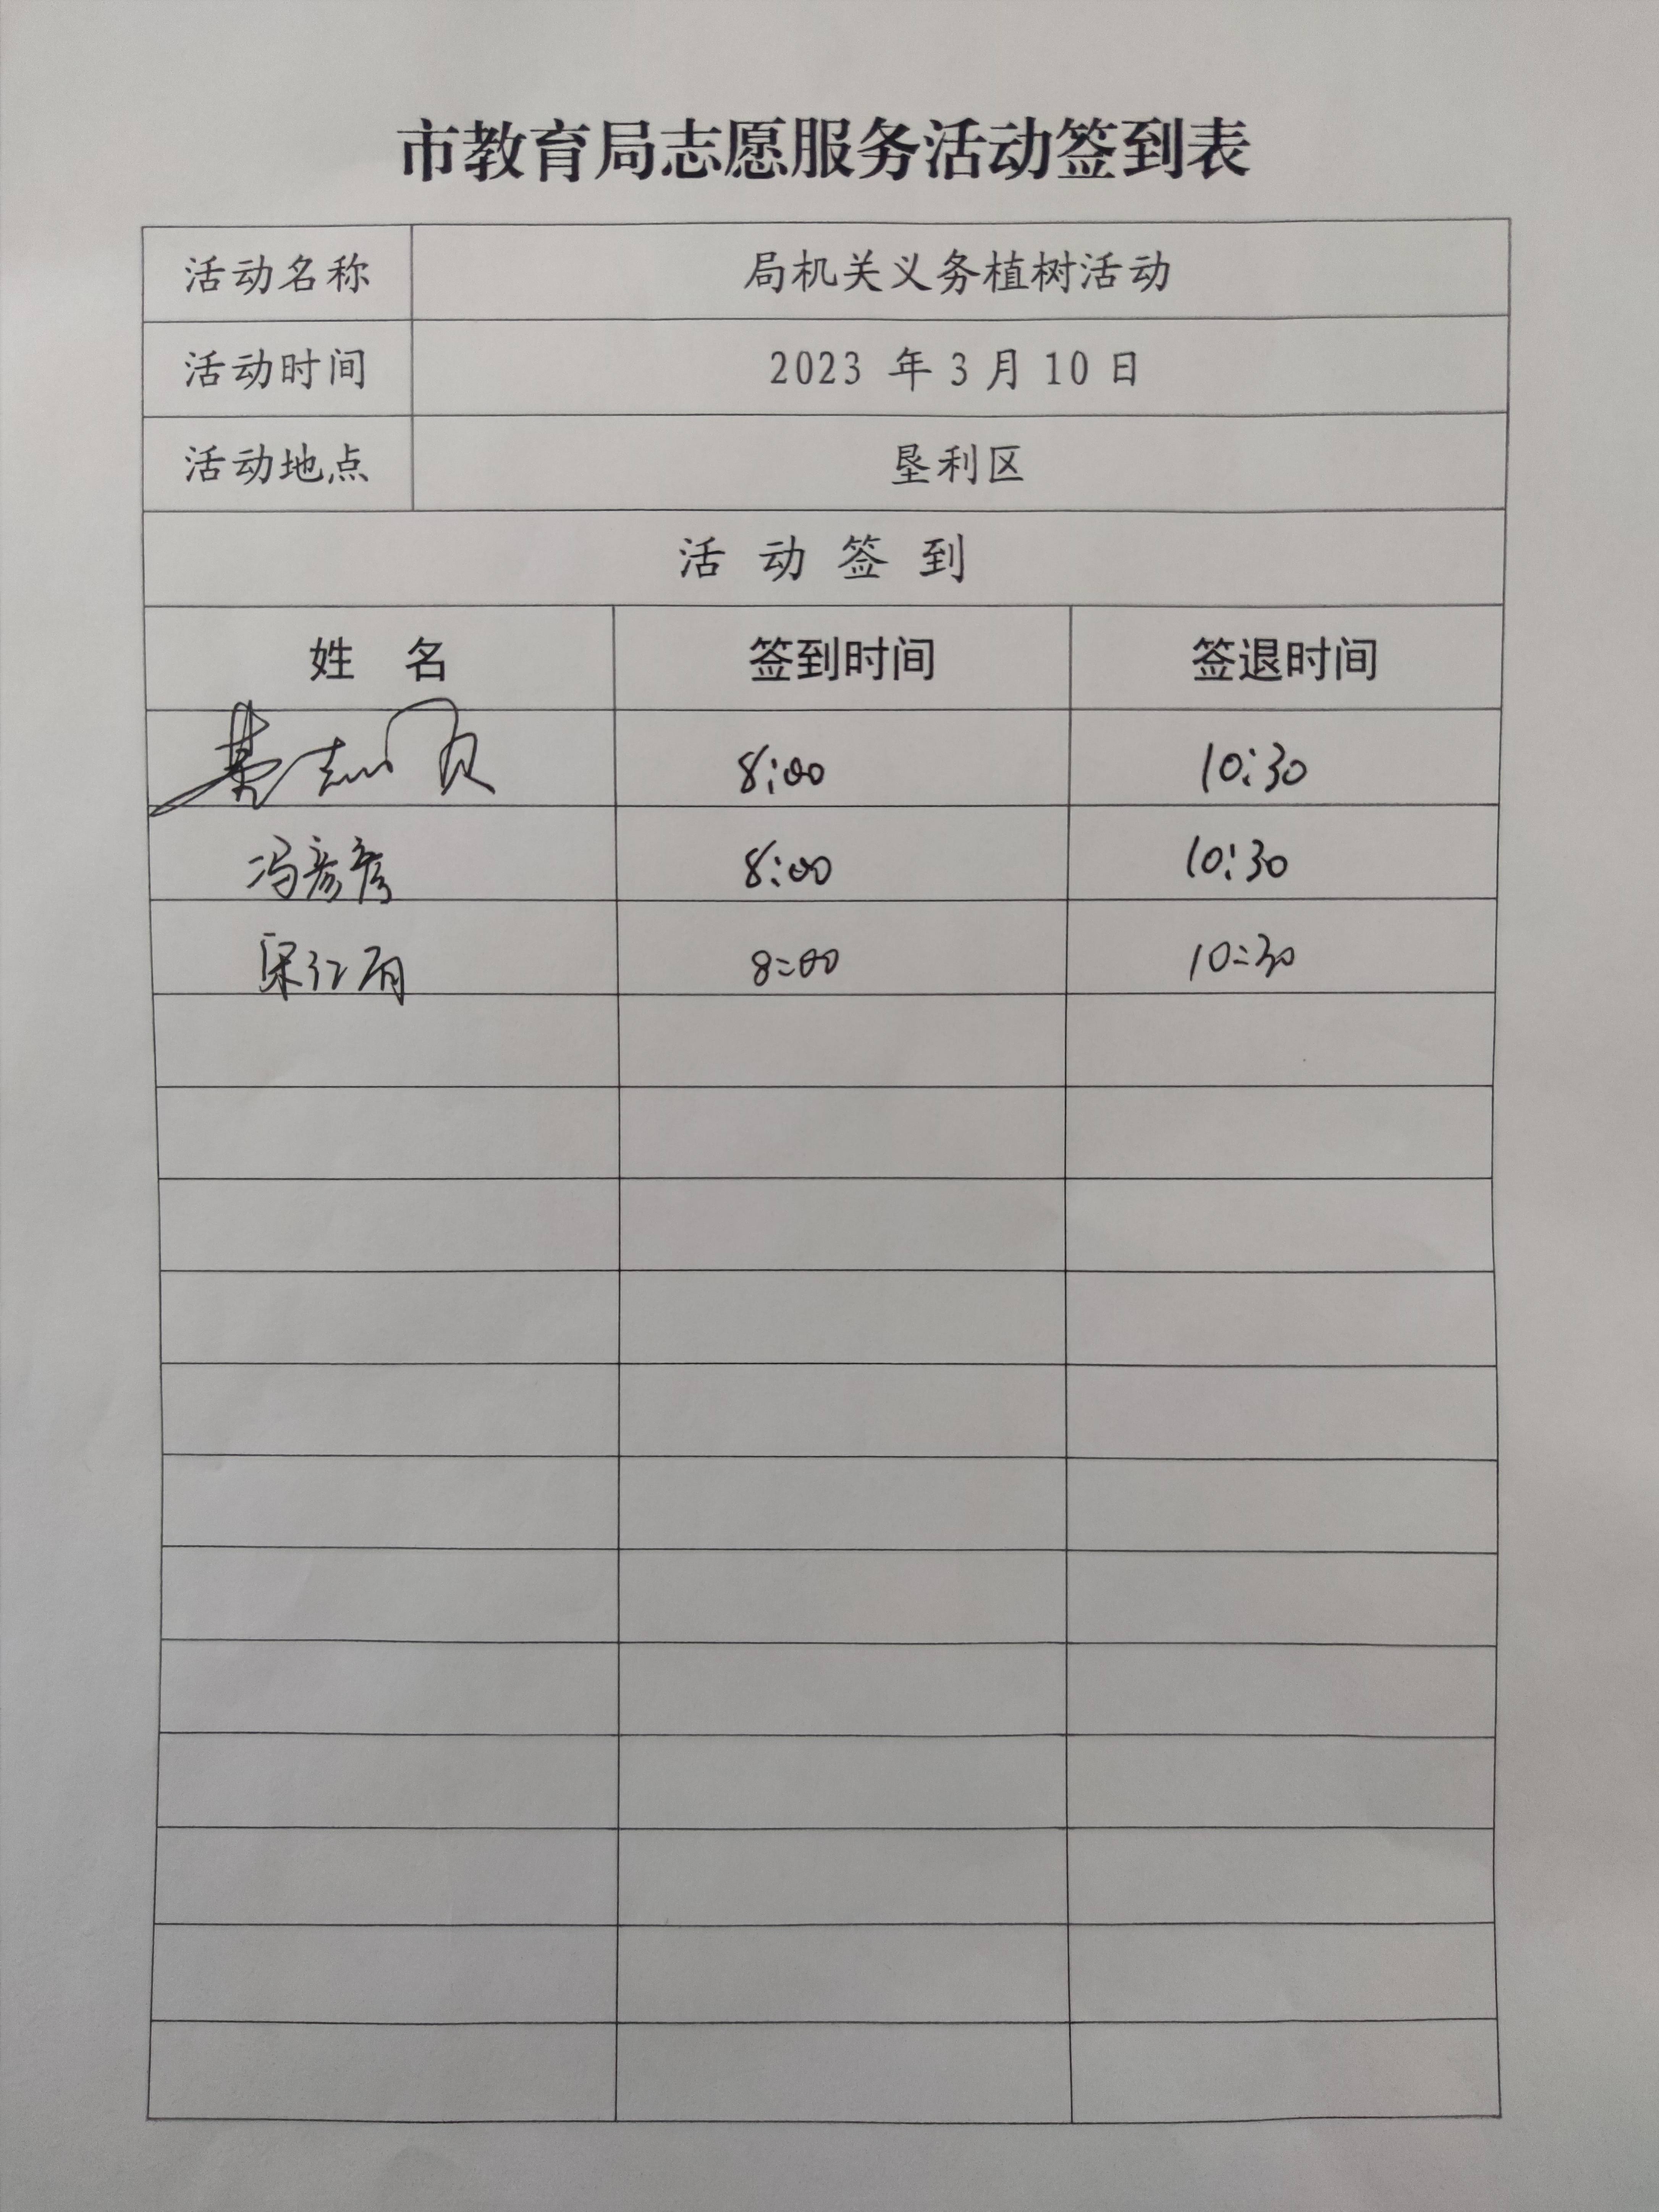 市教育局志愿服务活动签到表
活动名称 局机关义务植树活动
活动时间 2023 年 3 月 10 日
活动地点 垦利区
活 动 签 到
姓 名 签到时间 签退时间
8:00 10:30
冯彦彦 8:00 10:30
8:00 10:30